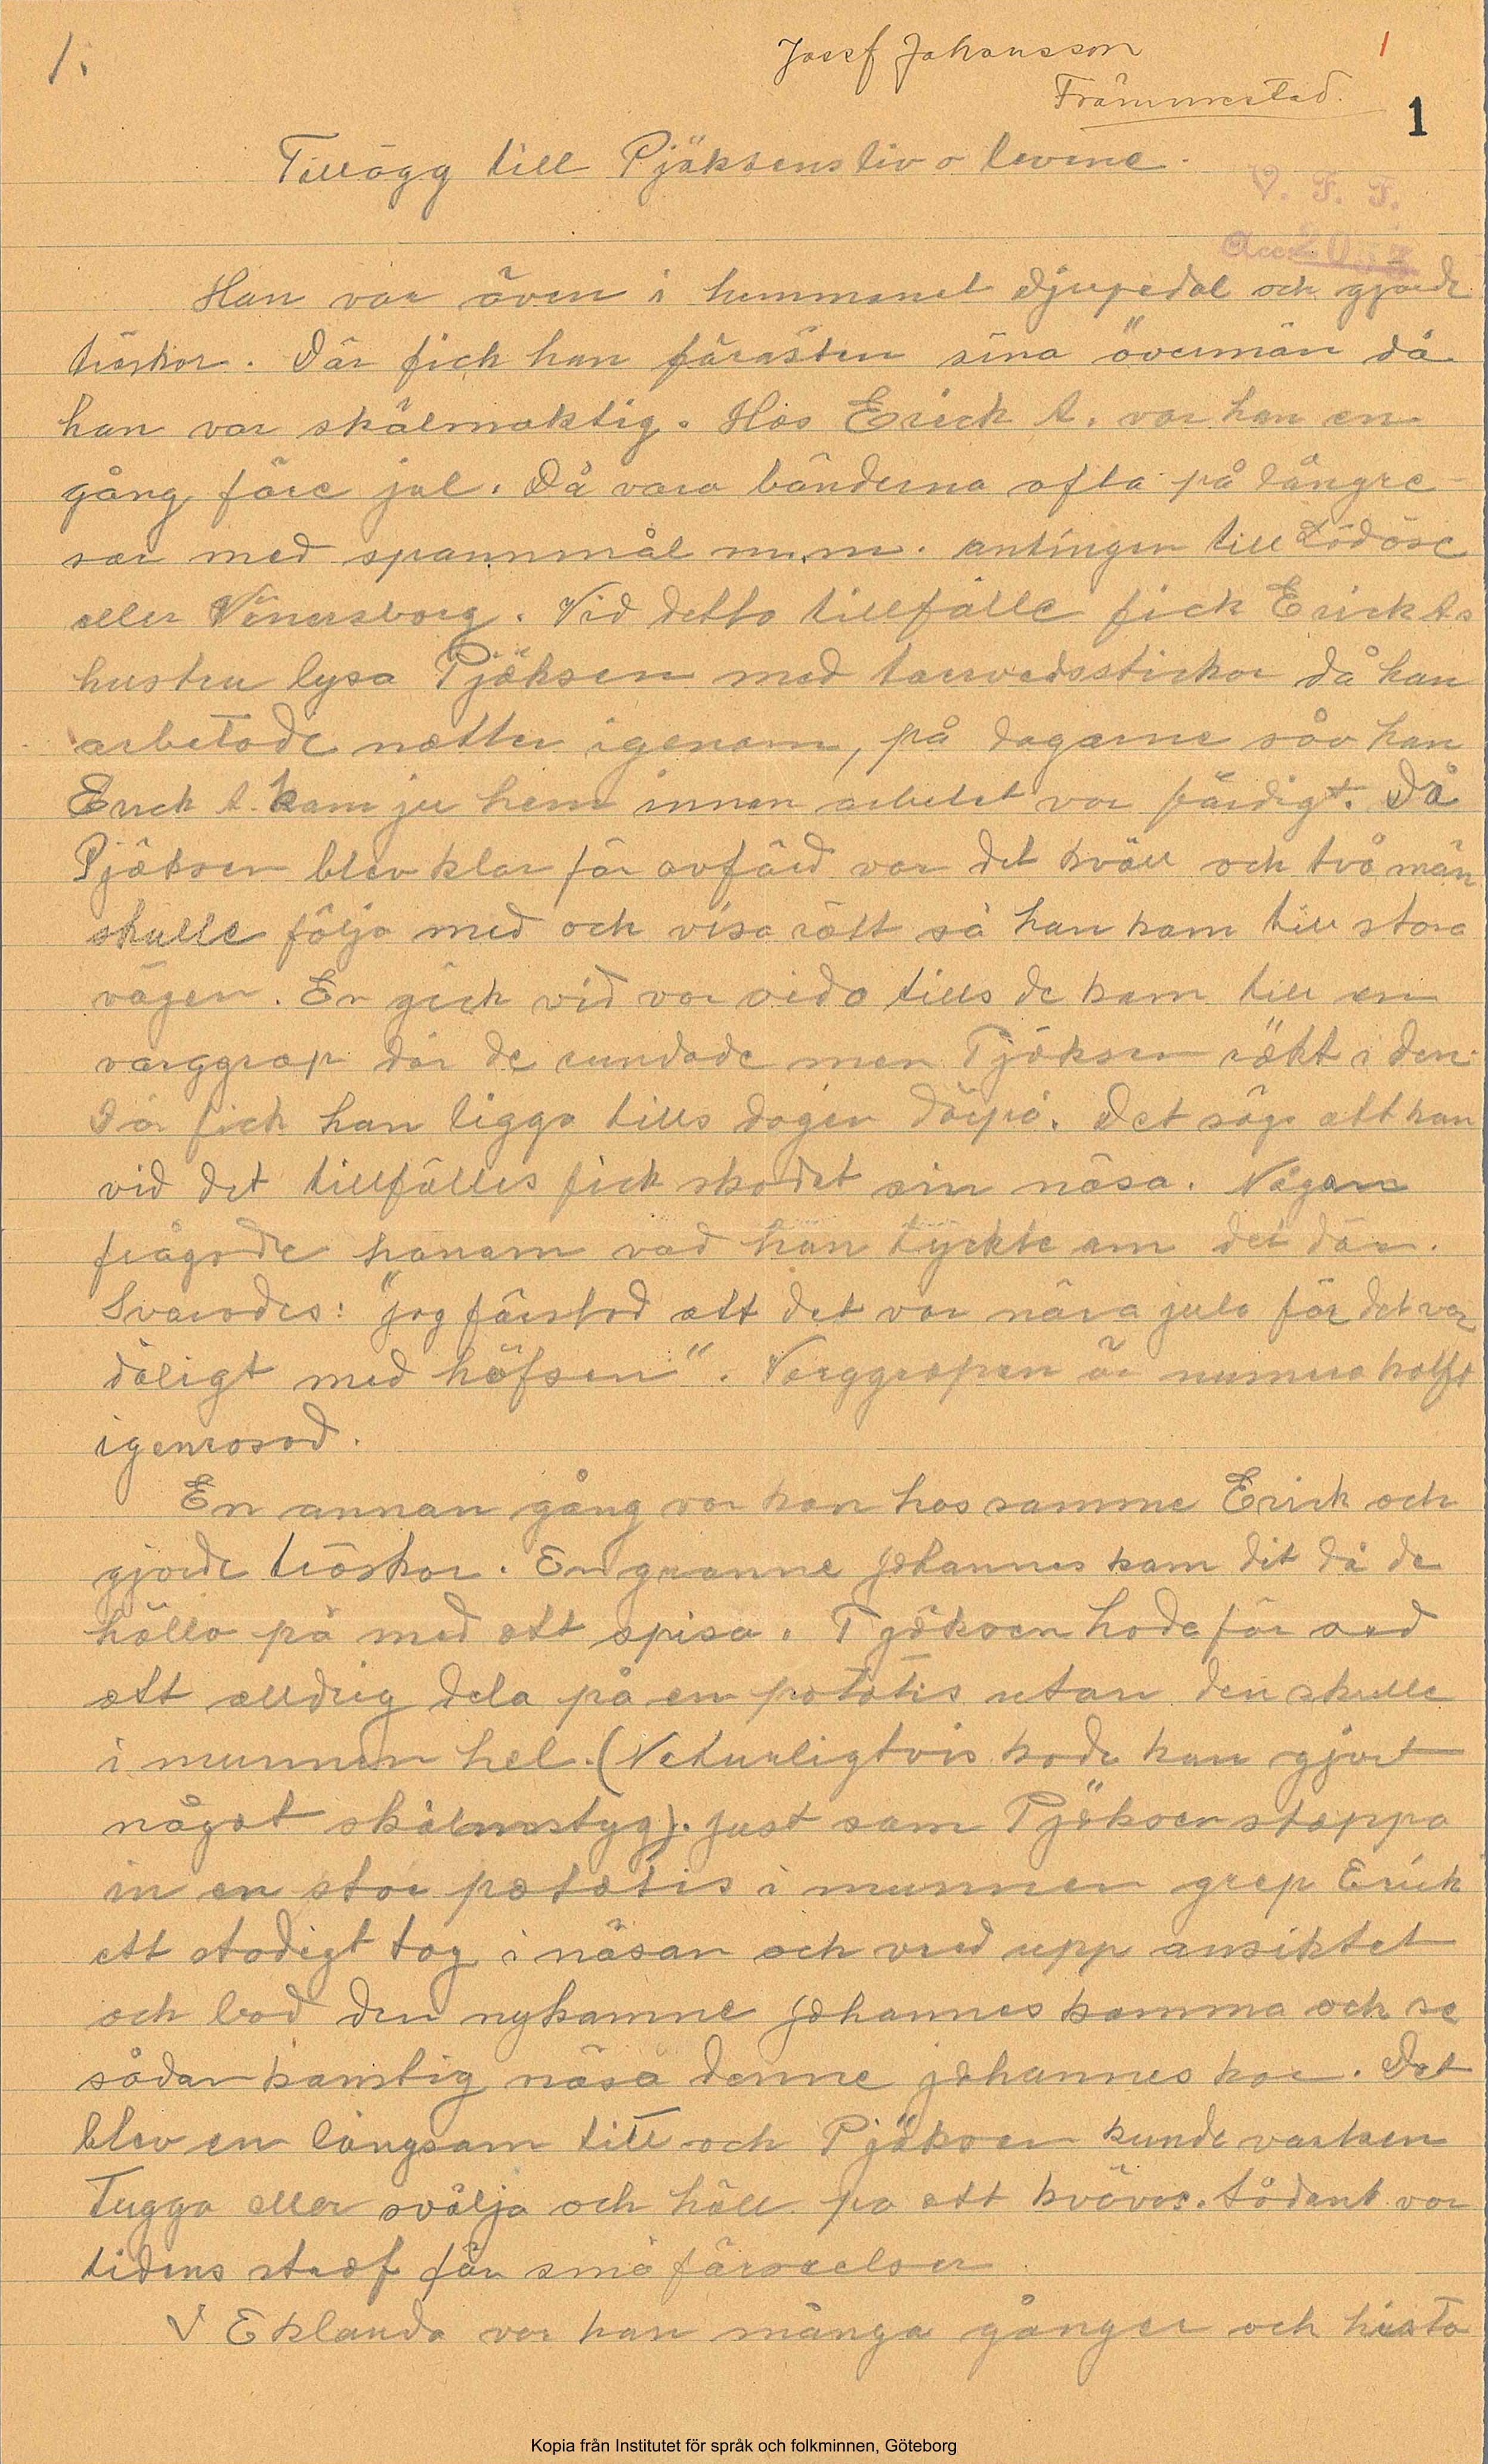 1.
Josef Johansson
1
Främmestad.
1
Tillägg till Pjäksens liv o leverne.
V. F. F.
Acc
Han var även i hemmanet Djupedal och gjorde
träskor. Där fick han förresten sina övermän då
han var skälmaktig. Hos Erick A. var han en
gång före jul. Då voro bönderna ofta på långre-
sor med spannmål m.m. antingen till Lödöse
eller Vänersborg. Vid detta tillfälle fick Erick As
hustru lysa Pjäksen med torrvedsstickor då han
arbetade nätter igenom, på dagarne sov han
Erick A. kom ju hem innan arbetet var färdigt. Då
Pjäksen blev klar för avfärd var det kväll och två män
skulle följa med och visa rätt så han kom till stora
vägen. En gick vid var sida tills de kom till en
varggrop där de rundade men Pjäksen rakt i den.
Där fick han ligga tills dagen därpå. Det sägs att han
vid det tillfälles fick skadet sin näsa. Någon
frågade honom vad han tyckte om det där.
Svarades: "jag förstod att det var nära jula för det var
dåligt med höfsen". Varggropen är numera halft
igenrasad.
En annan gång var han hos samme Erick och
gjorde träskor. En granne Johannes kom dit då de
höllo på med att spisa. Pjäksen hade för sed
att alldrig dela på en potatis utan den skulle
i munnen hel. (Naturligtvis hade han gjort
något skälmstyg). Just som Pjäksen stoppa
in en stor potatis i munnen grep Erick
ett stadigt tag i näsan och vred upp ansiktet
och bad den nykomne Johannes komma och se
sådan konstig näsa denne johannes har. Det
blev en långsam titt och Pjäksen kunde varken
Tugga eller svälja och höll på att kvävas. Sådant var
tidens straf för små förseelser
I Eklanda var han många gånger och
Kopia från Institutet för språk och folkminnen, Göteborg